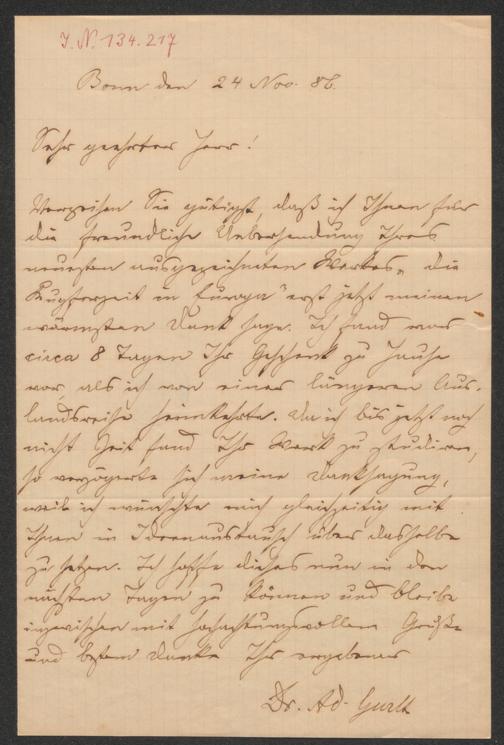 J. N. 134.217
Bonn den 24 Nov. 86.
Sehr geehrter Herr!
Verzeihen Sie gütigst, daß ich Ihnen für
die freundliche Uebersendung Ihres
neuesten ausgezeichneten Werkes „die
Kupferzeit in Europa" erst jetzt meinen
wärmsten Dank sage. Ich fand vor
circa 8 Tagen Ihr Geschenk zu Hause
vor, als ich von einer längeren Aus-
landsreise heimkehrte. Da ich bis jetzt noch
nicht Zeit fand Ihr Werk zu studiren,
so verzögerte sich meine Danksagung,
weil ich wünschte mich gleichzeitig mit
Ihnen in Ideenaustausch über dasselbe
zu setzen. Ich hoffe dieses nun in den
nächsten Tagen zu können und bleibe
inzwischen mit hochachtungsvollem Gruße
und bestem Danke Ihr ergebener
Dr. Ad. Gurlt